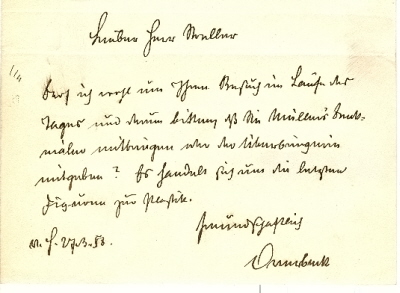 Lieber Herr Müller
Darf ich wohl um Ihren Besuch im Laufe des
Tages und darum bitten, daß Sie Müllers Denk-
mäler mitbringen oder der Überbringerin
mitgeben? Es handelt sich um die letzten
Figuren zur Plastik.
Freundschaftlich
27.3.53.